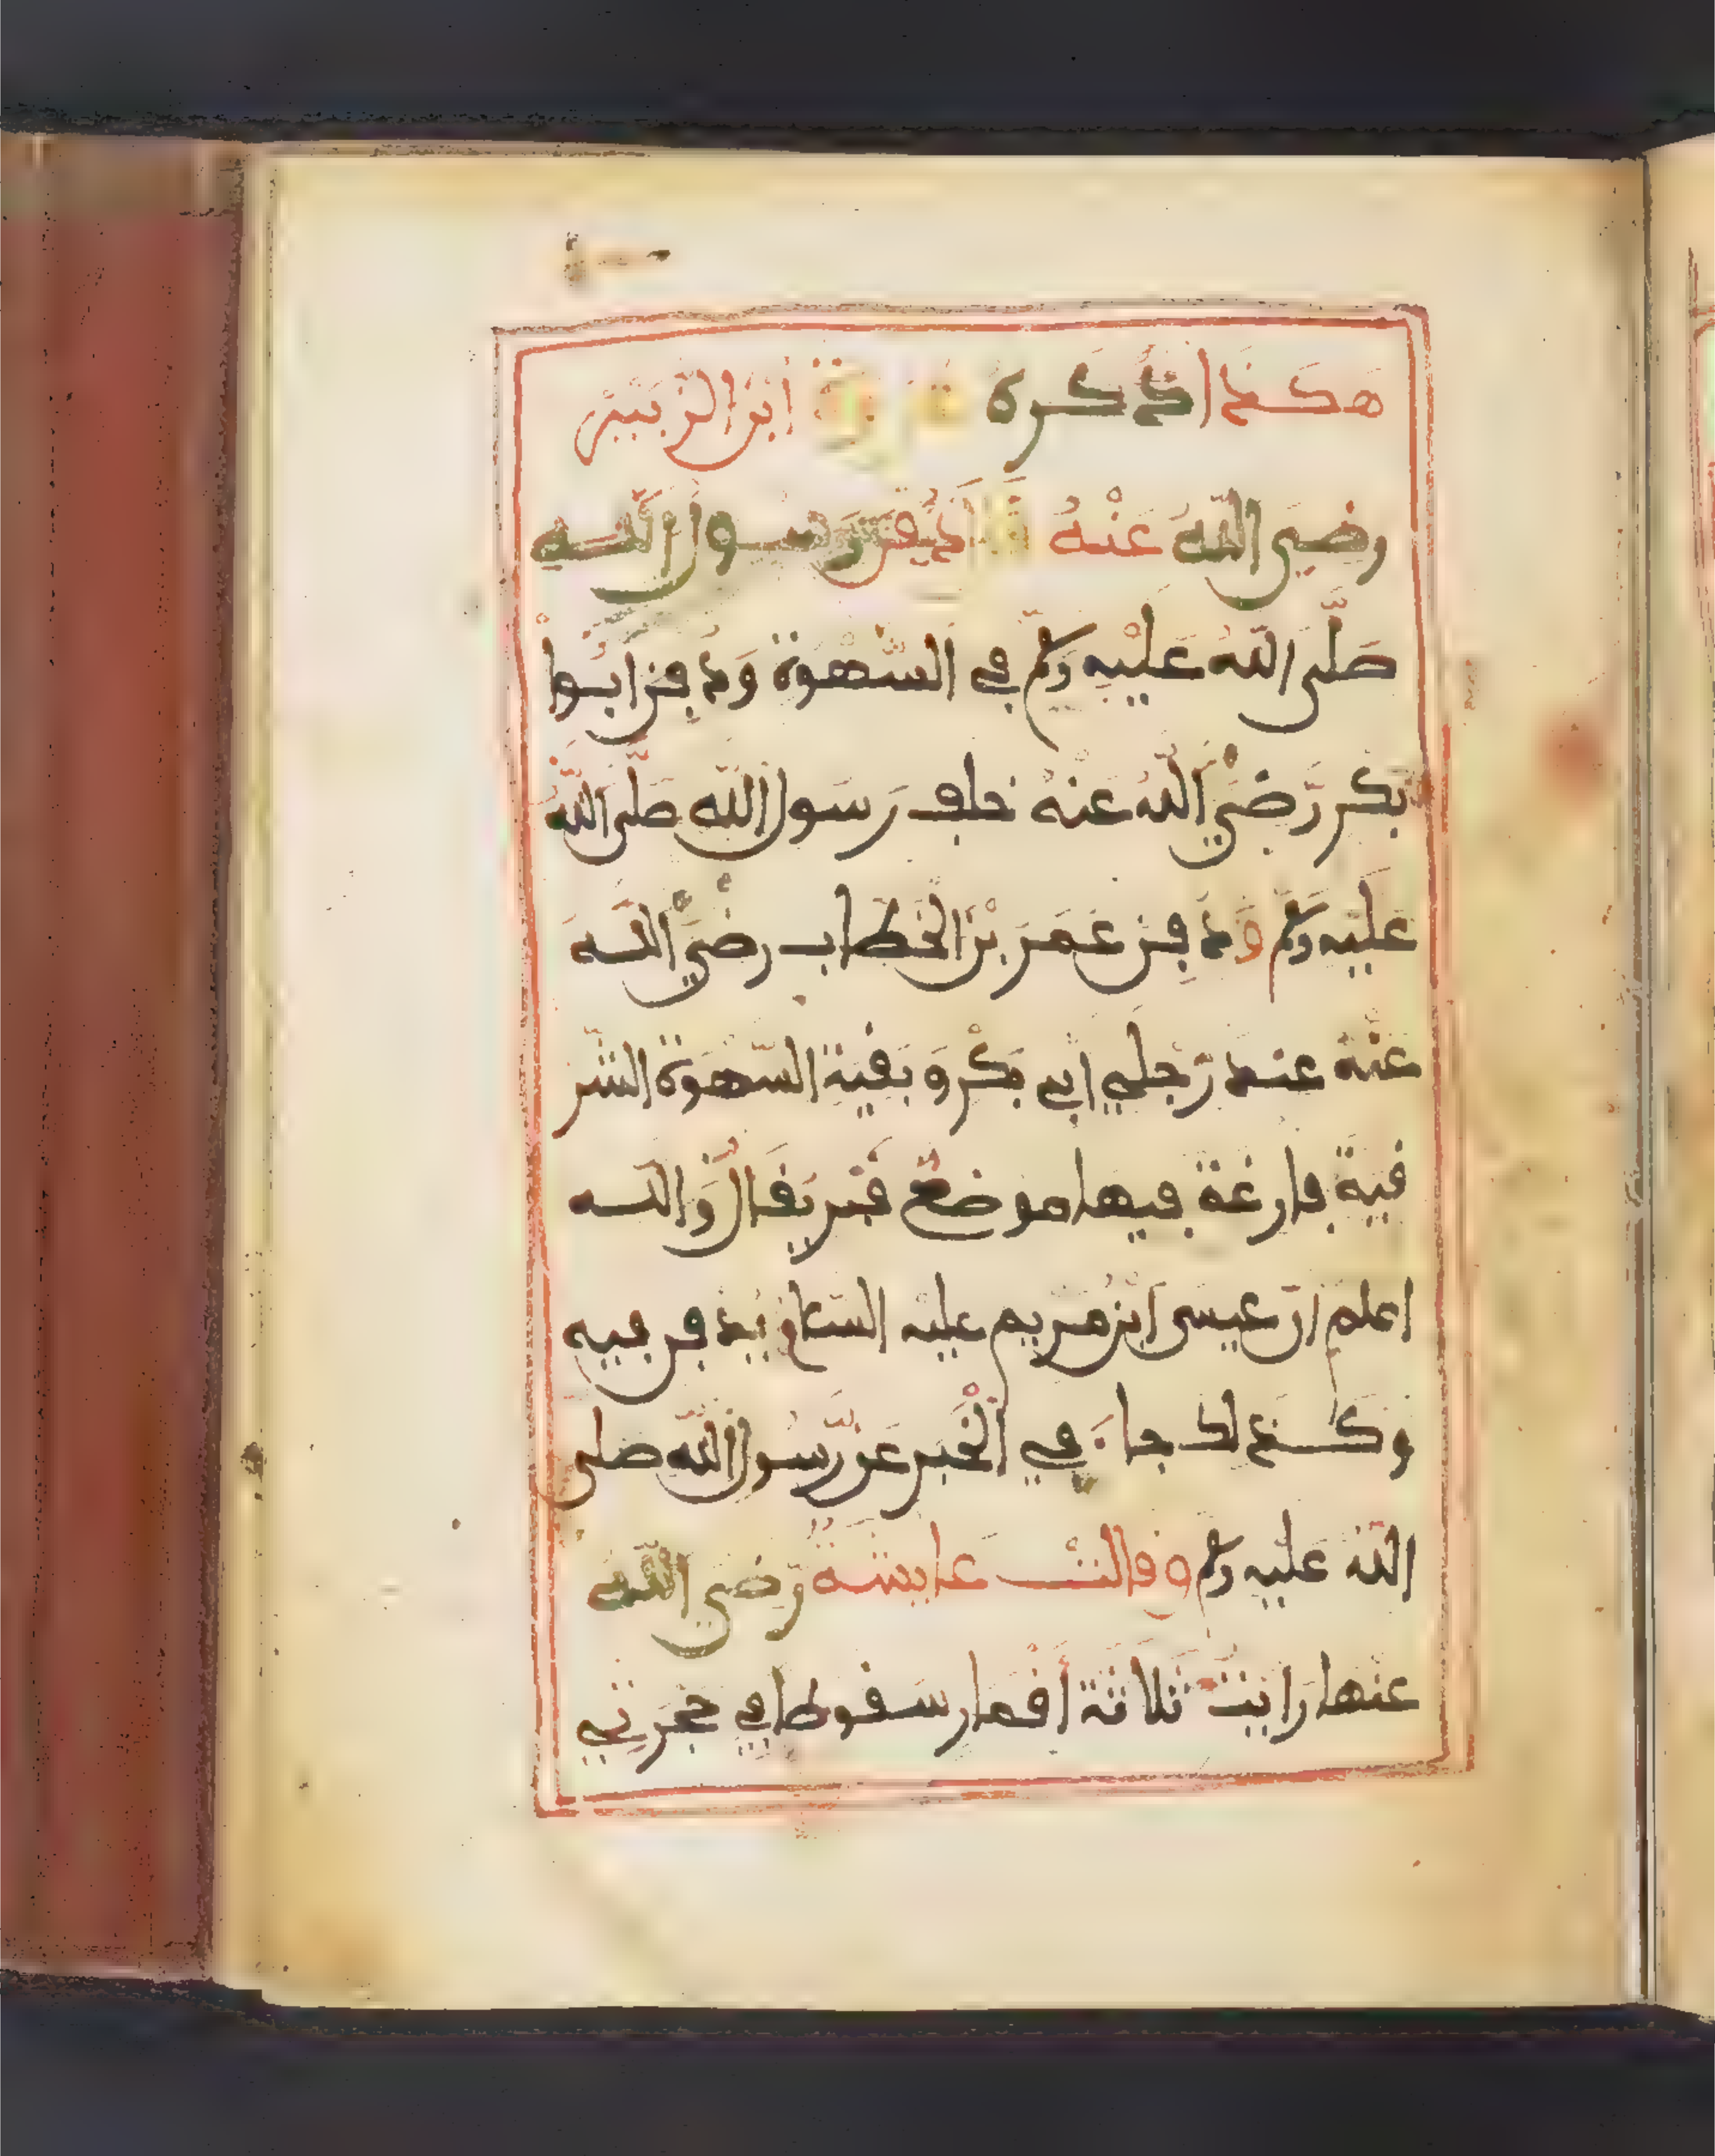 هكذا ذكره عروة ابن الزبير
رضي الله عنه قال دفن رسول الله
صلى الله عليه وسلم في السهوة ودفن ابوا
بكر رضي الله عنه خلف رسول الله صلى الله
عليه وسلم ودفن عمر بن الخطاب رضي الله
عنه عند رجلي ابي بكر وبقية السهوة الشر
قية فارغة فيها موضع قبر يقال والله
اعلم ان عيسى ابن مريم عليه السلام يدفن فيه
وكذلك جاء في الخبر عن رسول الله صلى
الله عليه وسلم وقالت عايشة رضي الله
عنها رايت ثلاثة اقمار سقوطا في حجرتي